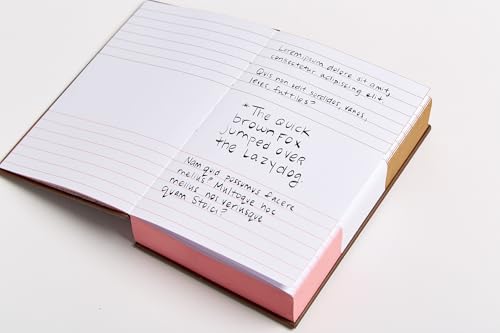 Loremipsum dolore sit amit,
consectetur adipiscing elit.
Quis non odit sordidos, vanos,
leves, futtiles?
* The quick
brown Fox
jumped over
the Lazydog
Nam quid possumus facere
melius? Multoque hoc
melius nos veriusque
quam Stoici?